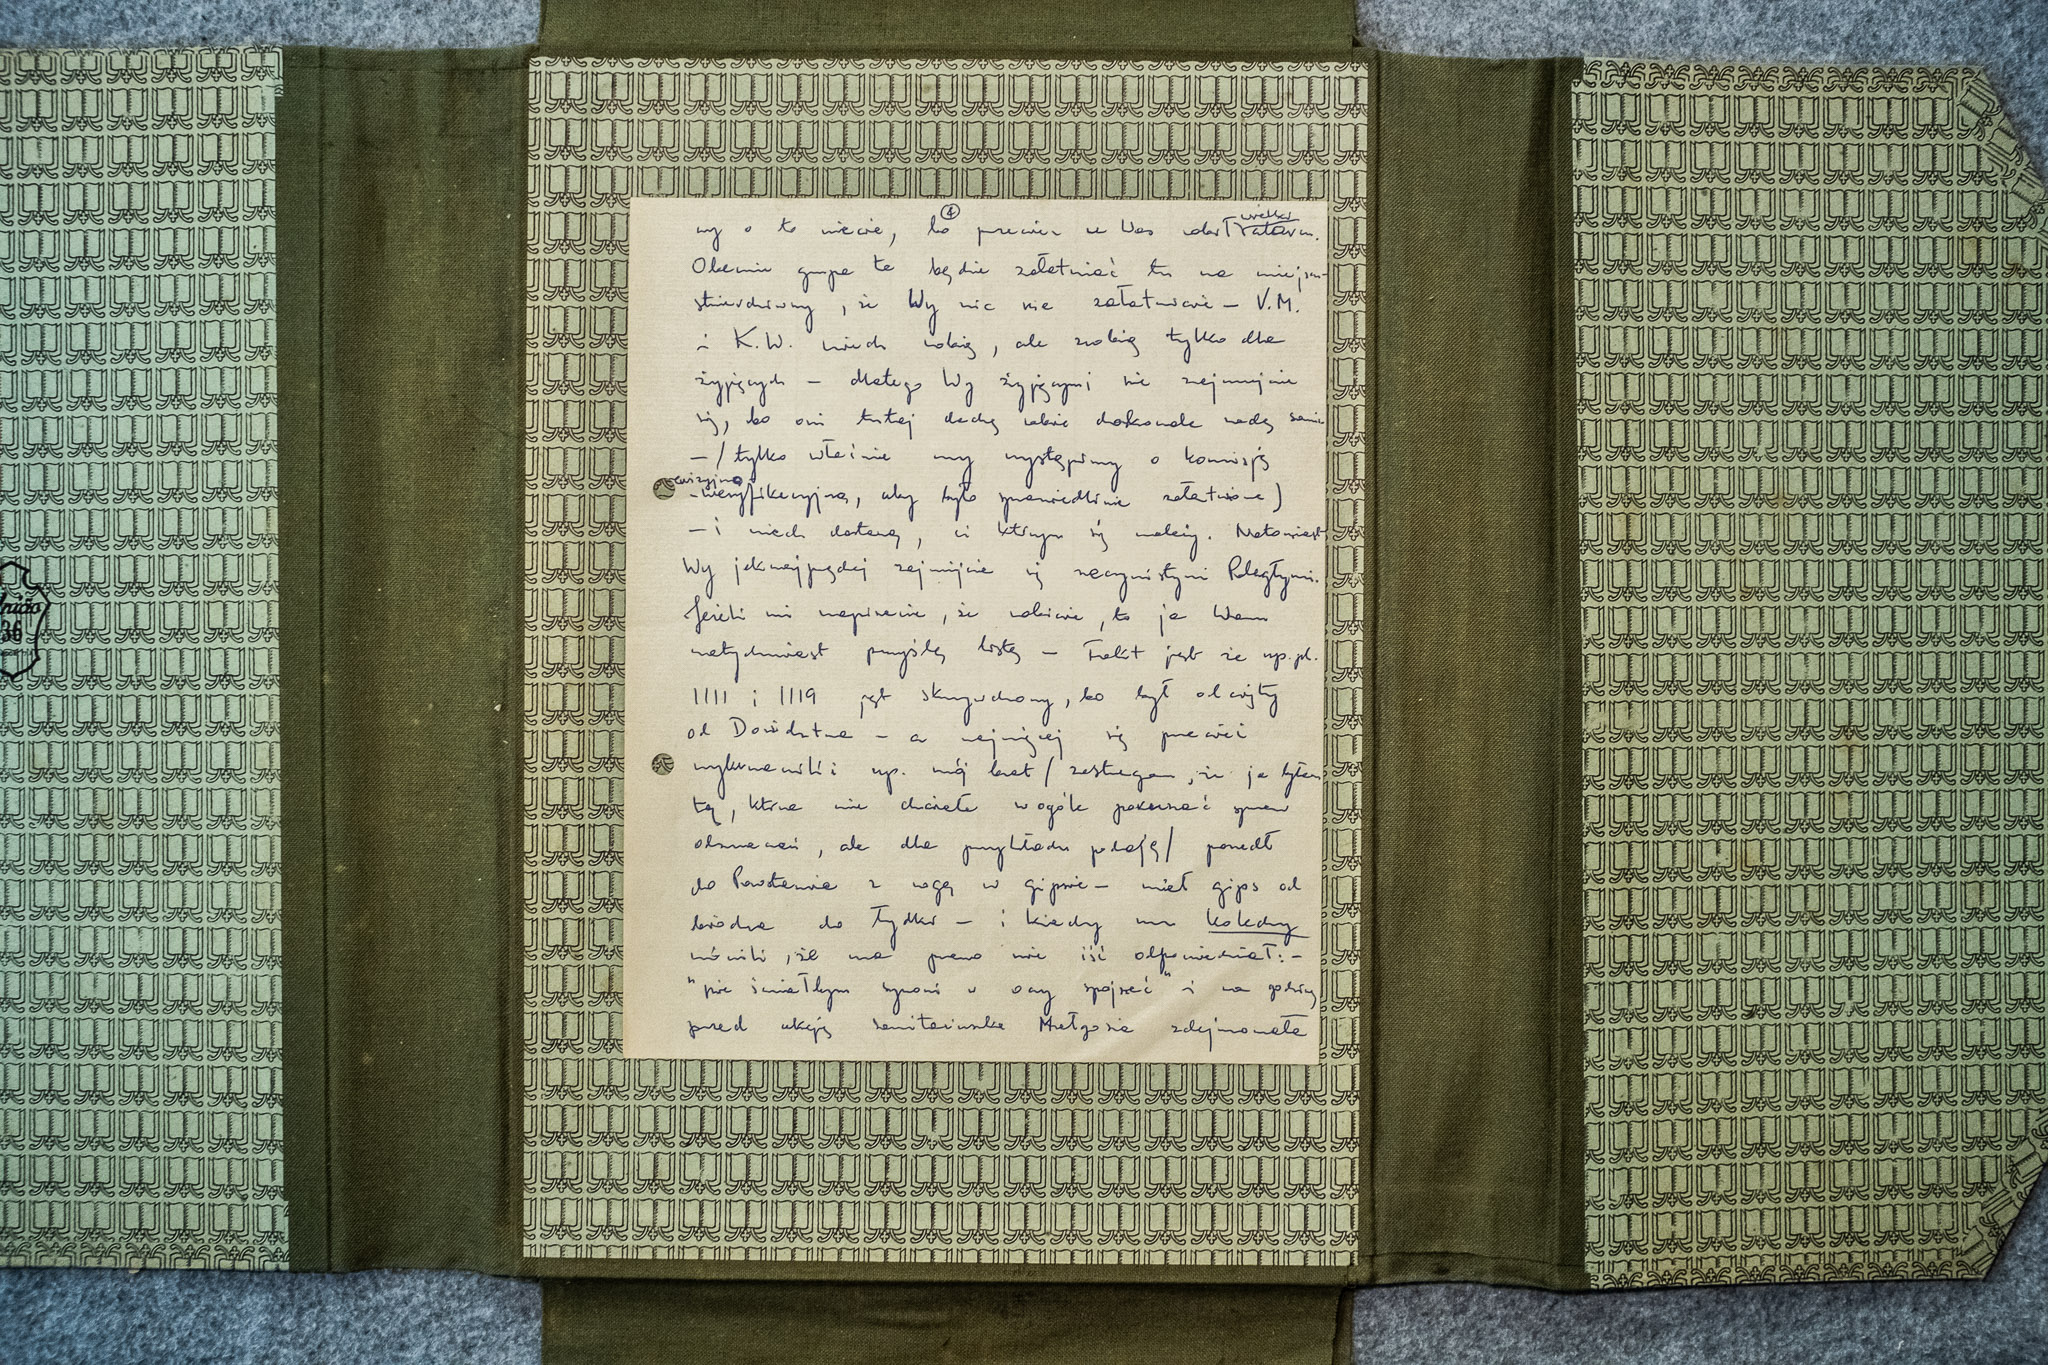 ④
wielki
my o to wiecie, bo przecież u Was
Obecnie grupa ta będzie załatwiać tu na miejscu
stwierdziwszy, że Wy nic nie załatwicie – V.M.
i K.W. niech robią, ale zrobią tylko dla
żyjących – dlatego Wy żyjącymi nie zajmujcie
się, bo oni tutaj dadzą sobie doskonale radę sami
– / tylko właśnie my wystąpimy o komisję
rewizyjną
– weryfikacyjną, aby było sprawiedliwie załatwione )
– i niech dostaną, ci którym się należy. Natomiast
Wy jaknajprędzej zajmijcie się rzeczywistymi Poległymi.
Jeżeli mi napiszecie, że robicie, to ja Wam
natychmiast prześlę listę – Fakt jest że np. pl.
1111 i 1119 jest skrzywdzony, bo był odcięty
od Dowództwa – a najwięcej się przecież
wykrwawili i np. mój brat / zastrzegam, że ja byłam
tą, która nie chciała wogóle poruszać spraw
odznaczeń, ale dla przykładu podaję / poszedł
do Powstania z nogą w gipsie – miał gips od
biodra do łydki – i kiedy mu koledzy
mówili, że ma prawo nie iść odpowiedział: –
"nie śmiałbym synowi w oczy spojrzeć" i na godzinę
przed akcją sanitariuszka Małgosia zdejmowała
36